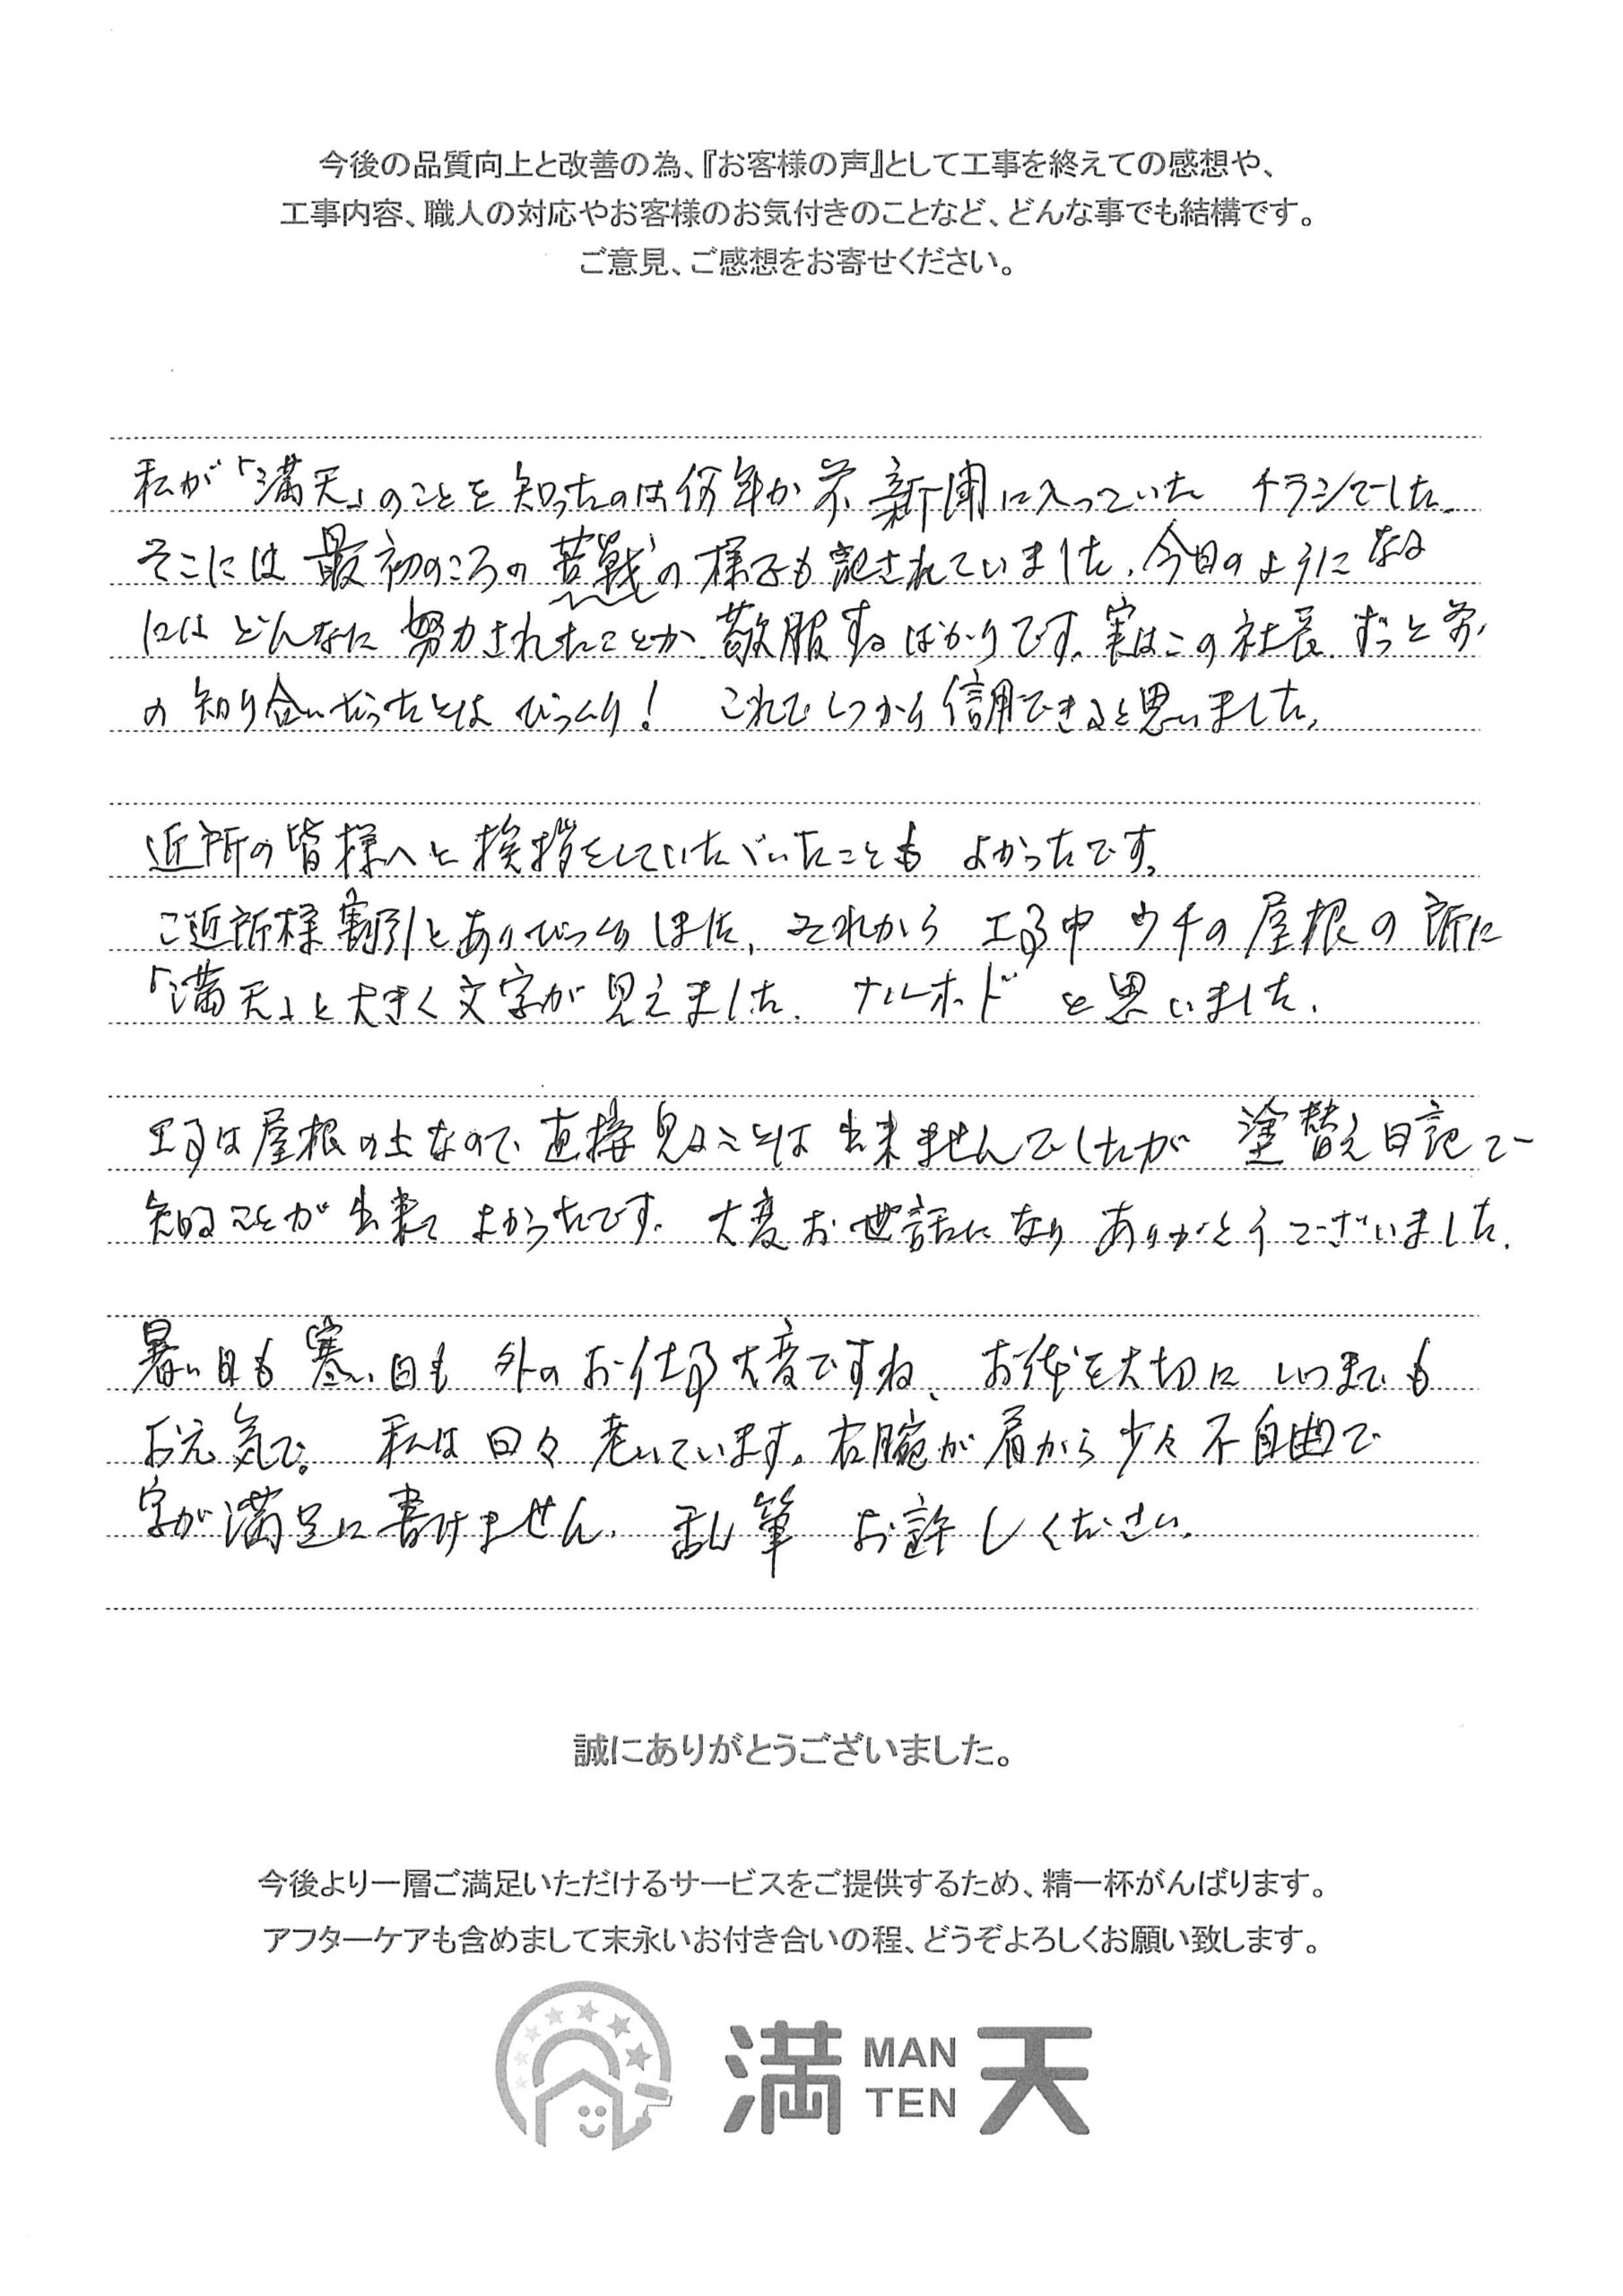 今後の品質向上と改善の為、『お客様の声』として工事を終えての感想や、
工事内容、職人の対応やお客様のお気付きのことなど、どんな事でも結構です。
ご意見、ご感想をお寄せください。
私が「満天」のことを知ったのは何年か前、新聞に入っていた チラシでした。
そこには最初のころの苦戦の様子も記されていました。今日のようになる
にはどんなに努力されたことか、敬服するばかりです。実はこの社長、ずっと前
の知り合いだったとはびっくり! これでしっかり信用できると思いました。
近所の皆様へと挨拶をしていただいたことも よかったです。
ご近所様割引とありびっくりしました。それから 工事中 ウチの屋根の所に
「満天」と大きく文字が見えました。 ナルホド と思いました。
工事は屋根の上なので、直接見ることは出来ませんでしたが 塗替え日記で
知ることが出来て よかったです。 大変お世話になり ありがとうございました。
暑い日も寒い日も 外のお仕事大変ですね、 お体を大切に いつまでも
お元気で。 私は日々老いています。右腕が肩から少々不自由で
字が満足に書けません。 乱筆 お許しください。
誠にありがとうございました。
今後より一層ご満足いただけるサービスをご提供するため、精一杯がんばります。
アフターケアも含めまして末永いお付き合いの程、どうぞよろしくお願い致します。
満 MAN TEN 天